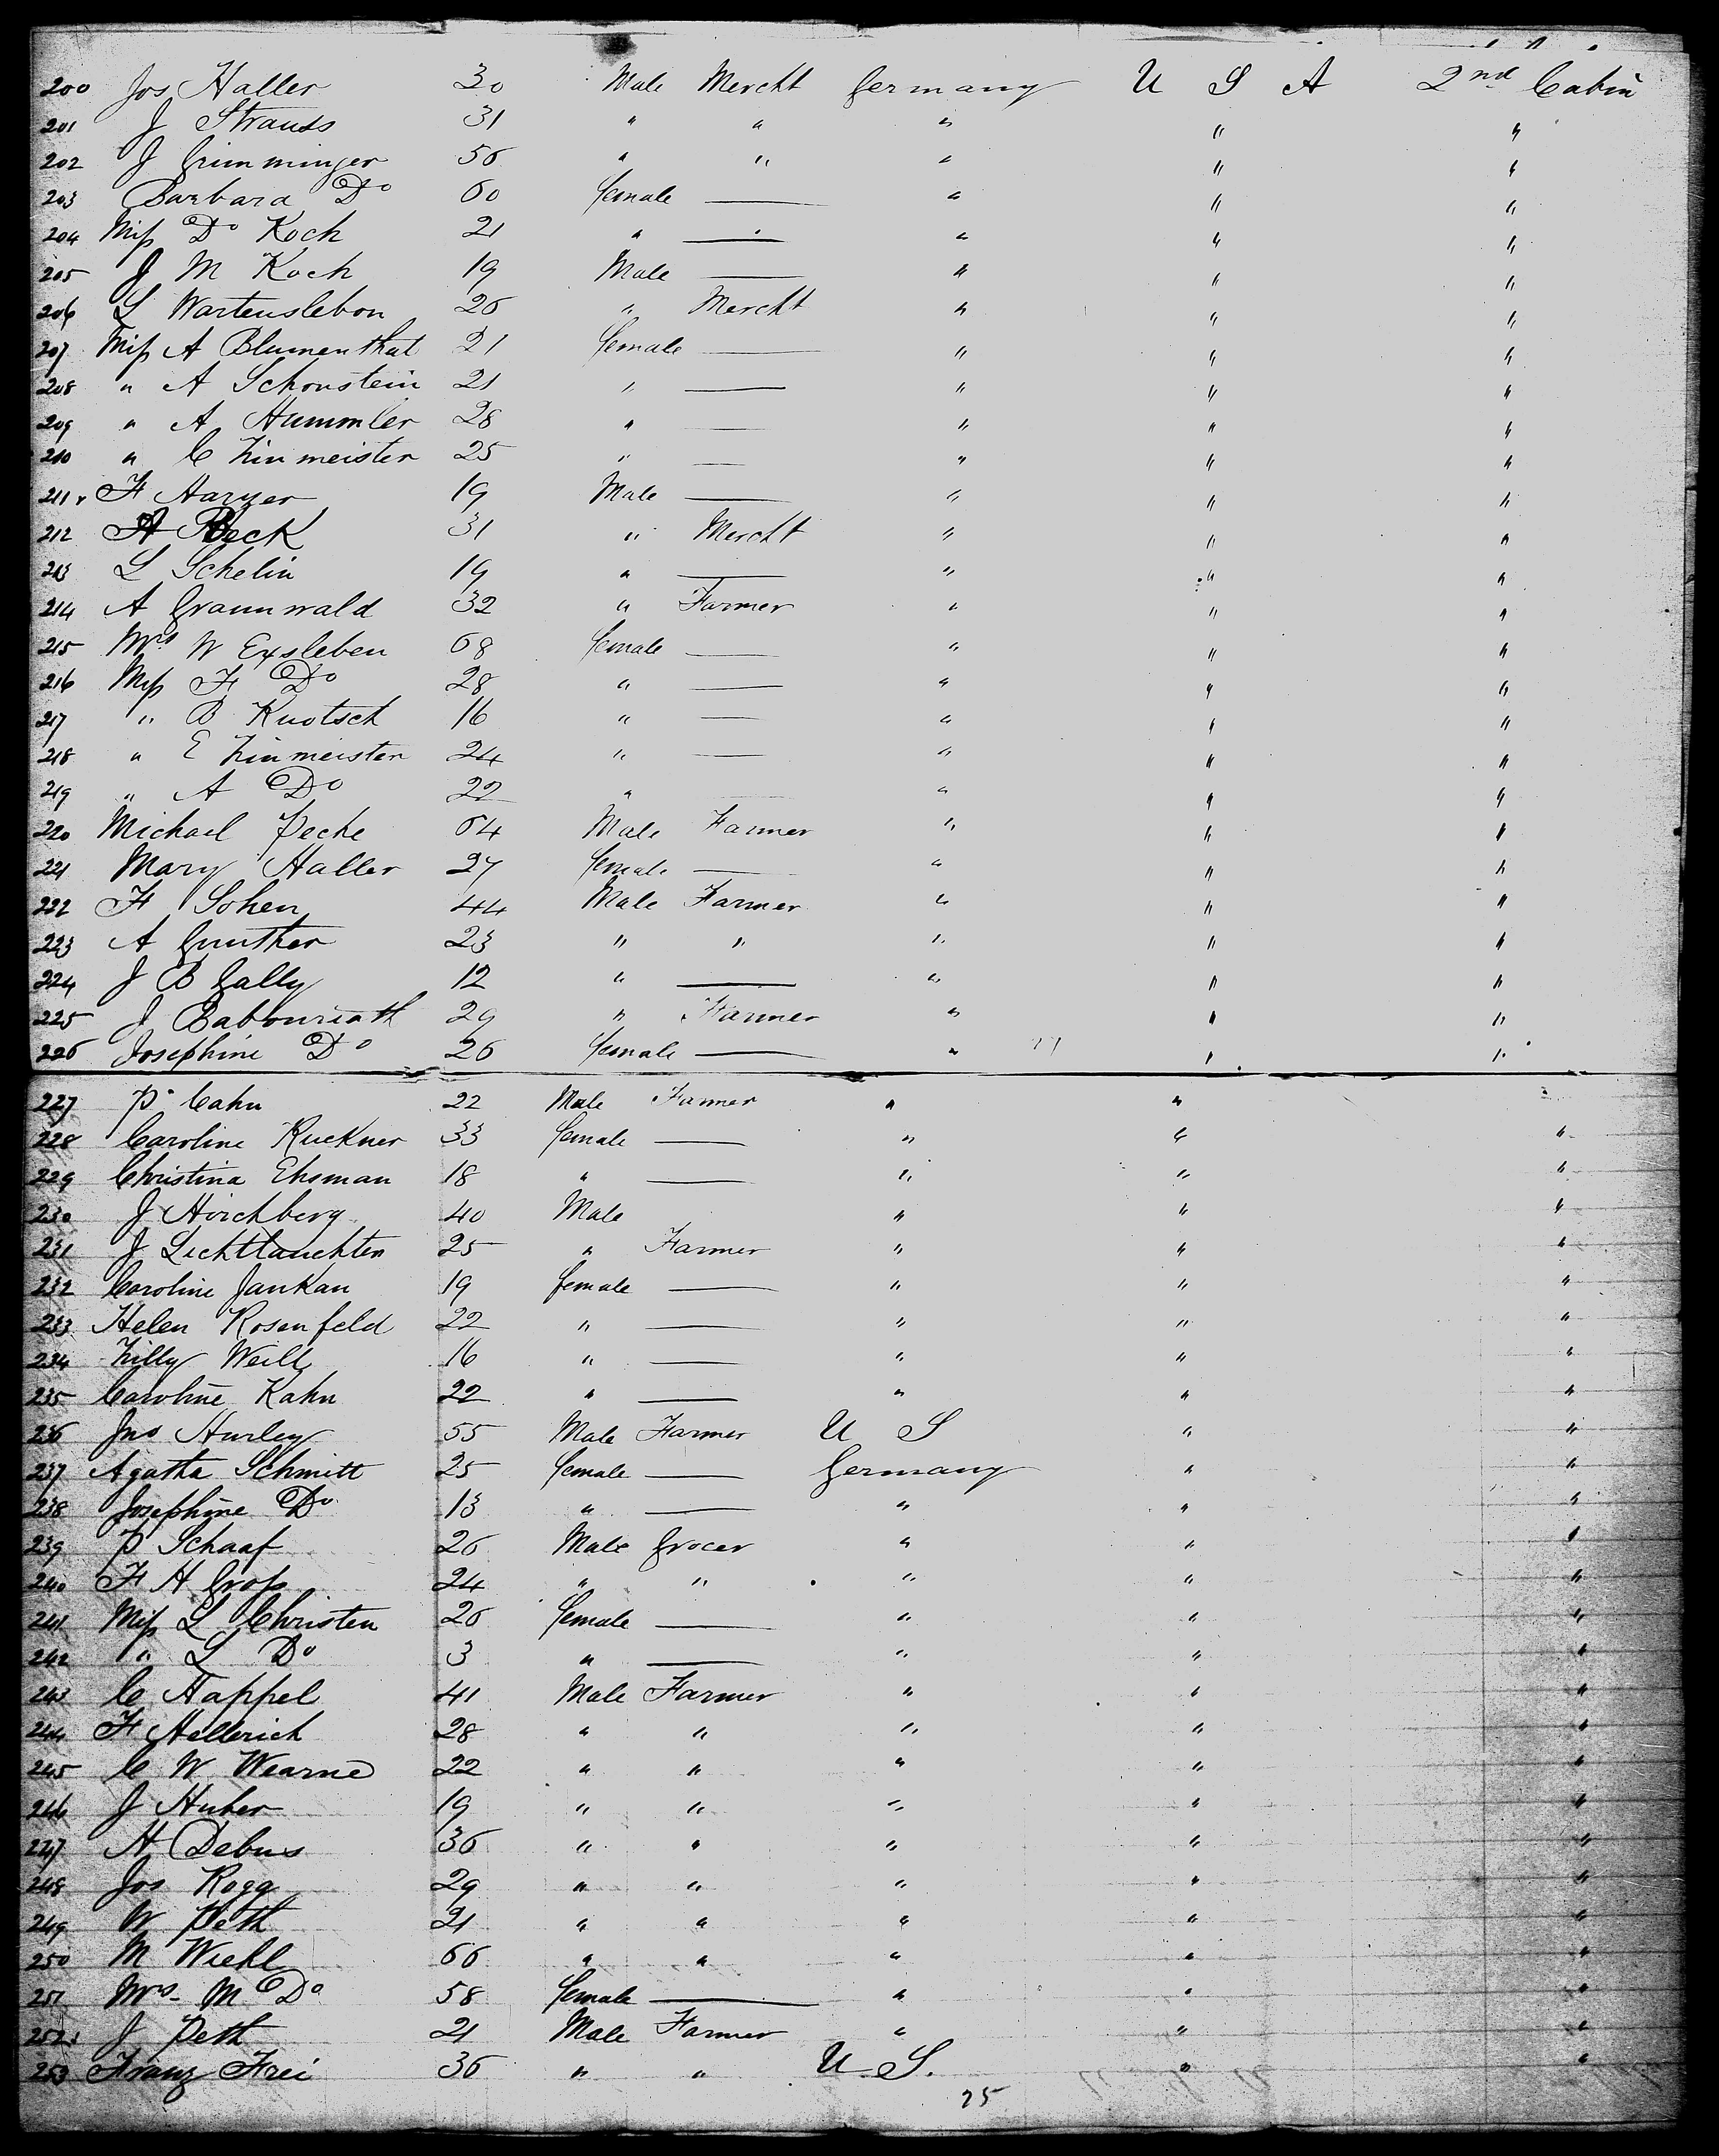 200 Jos Haller 30 Male Mercht Germany U S A 2nd Cabin
201 J Strauss 31 " " " " "
202 J Grimminger 56 " " " " "
203 Barbara Do 60 female — " " "
204 Miss Do Koch 21 " — " " "
205 J M Koch 19 Male — " " "
206 L Wartenslebon 26 " Mercht " " "
207 Miss A Blumenthal 21 female — " " "
208 " A Schonstein 21 " — " " "
209 " A Hummler 28 " — " " "
210 " C Zinmeister 25 " — " " "
211 F Harzer 19 Male — " " "
212 A Beck 31 " Mercht " " "
213 L Schelin 19 " — " " "
214 A Graunwald 32 " Farmer " " "
215 Mrs W Exsleben 68 female — " " "
216 Miss F Do 28 " — " " "
217 " B Knotsch 16 " — " " "
218 " E Zinmeister 24 " — " " "
219 " A Do 22 " — " " "
220 Michael Peche 64 Male Farmer " " "
221 Mary Haller 27 female — " " "
222 F Sohen 44 Male Farmer " " "
223 A Gunther 23 " " " " "
224 J B Gally 12 " — " " "
225 J Babouriath 29 " Farmer " " "
226 Josephine Do 26 female — " " "
227 P Cahn 22 Male Farmer " "
228 Caroline Ruckner 33 female — " " "
229 Christina Ehsman 18 " — " " "
230 J Hirchberg 40 Male " " "
231 J Lichttauchten 25 " Farmer " " "
232 Caroline Jankau 19 female — " " "
233 Helen Rosenfeld 22 " — " " "
234 Zilly Weill 16 " — " " "
235 Caroline Kahn 22 " — " " "
236 Jno Hurley 55 Male Farmer U S " "
237 Agatha Schmitt 25 female — Germany " "
238 Josephine Do 13 " — " " "
239 P Schaaf 26 Male Grocer " " "
240 F H Gross 24 " " " " "
241 Miss L Christen 26 female — " " "
242 " L Do 3 " — " " "
243 C Happel 41 Male Farmer " " "
244 F Hellerich 28 " " " " "
245 C W Wearne 22 " " " " "
246 J Huber 19 " " " " "
247 H Debus 36 " " " " "
248 Jos Rogg 29 " " " " "
249 W Peth 21 " " " " "
250 M Wiehl 66 " " " " "
251 Mrs M Do 58 female — " " "
252 J Peth 21 Male Farmer " " "
253 Franz Frei 36 " " U S. " "
25